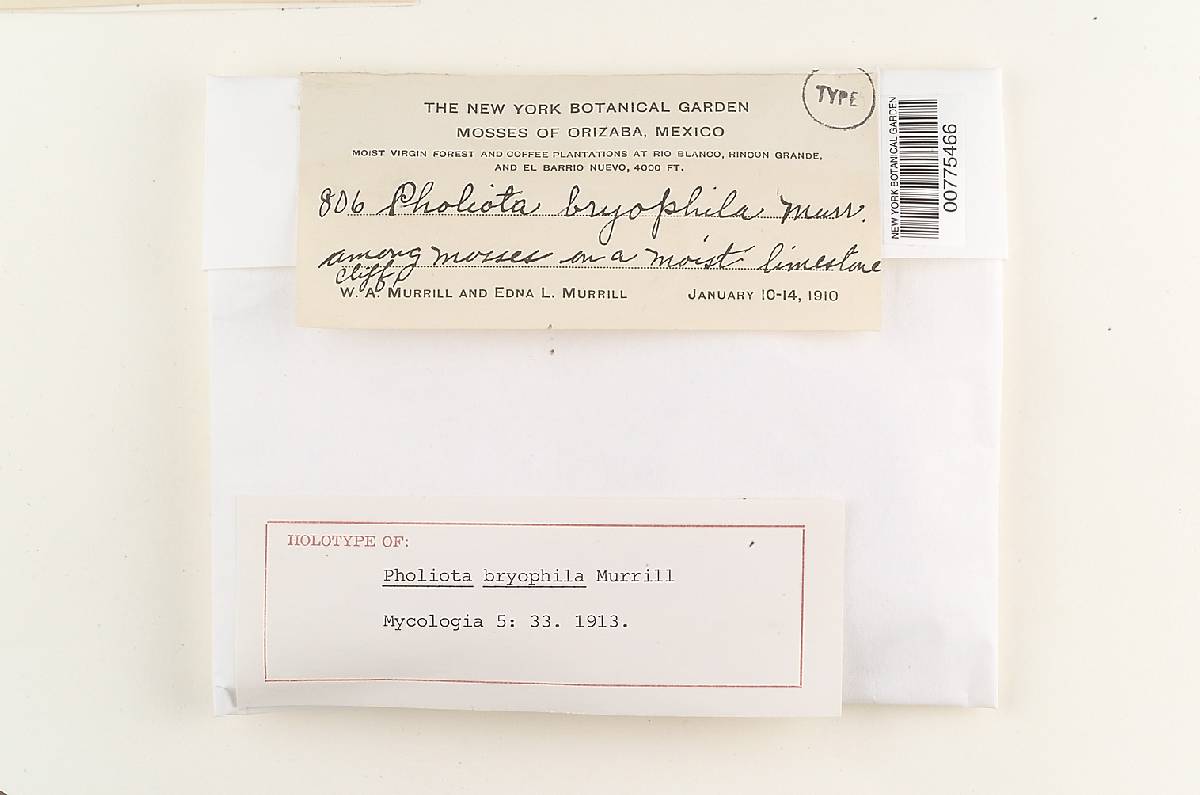 THE NEW YORK BOTANICAL GARDEN
TYPE
MOSSES OF ORIZABA, MEXICO
MOIST VIRGIN FOREST AND COFFEE PLANTATIONS AT RIO BLANCO, RINCON GRANDE,
AND EL BARRIO NUEVO, 4000 FT.
806 Pholiota bryophila Murr.
among mosses on a moist limestone
cliff
W. A. MURRILL AND EDNA L. MURRILL JANUARY 10-14, 1910
NEW YORK BOTANICAL GARDEN
00775466
HOLOTYPE OF:
Pholiota bryophila Murrill
Mycologia 5: 33. 1913.